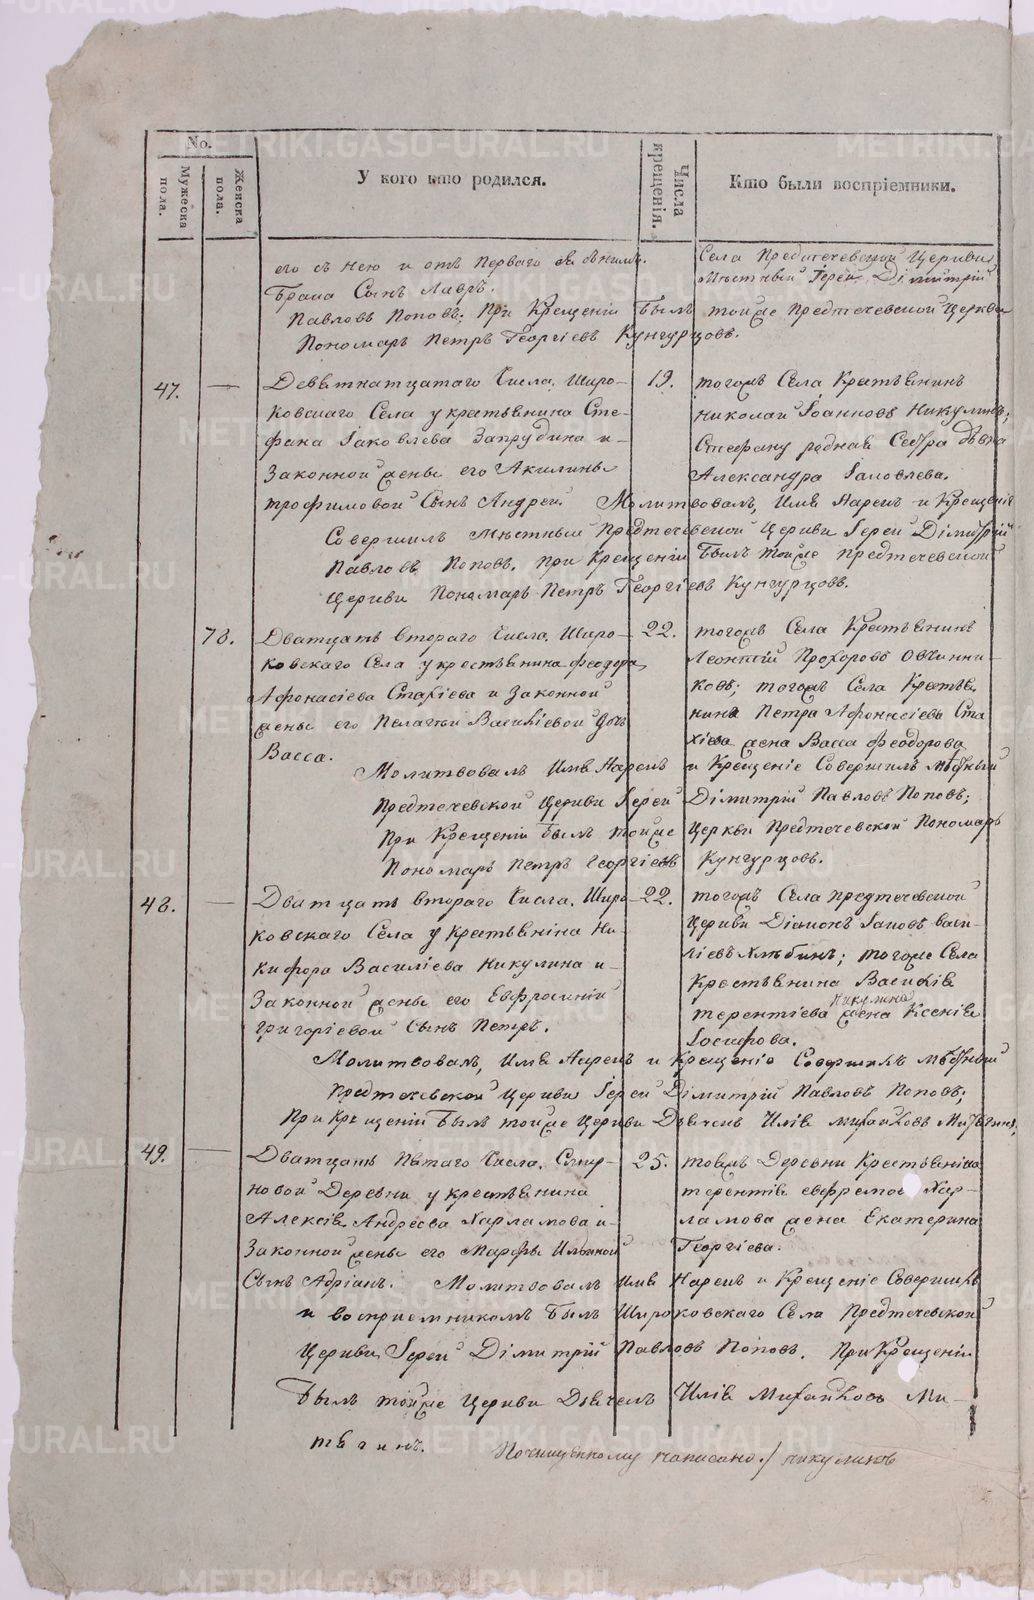 METRIKI.GASO-URAL.RU
No.
Мужеска пола.
Женска пола.
У кого кто родился.
Числа крещенія.
Кто были воспріемники.
его съ нею и отъ перваго
брака Сынъ Лавръ.
Села Предтечевской Церкви
мѣстный Іерей Дімитрій
Павловъ Поповъ; При Крещеніи былъ тойже Предтечевской Церкви
Пономарь Петръ Георгіевъ Кунгурцовъ.
47. — Девятнатцатаго Числа, Широ-
ковскаго Села у крестьянина Сте-
фана Іаковлева Запрудина и
Законной жены его Акилины
трофимовой Сынъ Андрей
19.
тогожъ Села Крестьянинъ
Николай Іоанновъ Никулинъ;
Стефану родная Сестра дѣвка
Александра Іаковлева.
Молитвовалъ, Имя Нарекъ и Крещеніе
Совершилъ мѣстный Предтечевской Церкви Іерей Дімитрій
Павловъ Поповъ. При Крещеніи былъ тойже Предтечевской
Церкви Пономарь Петръ Георгіевъ Кунгурцовъ.
78. Дватцать втораго Числа, Широ-
ковскаго Села у крестьянина Феодора
Афонасіева Стахіева и Законной
жены его Пелагіи Василіевой дочь
Васса.
22.
тогожъ Села Крестьянинъ
Леонтій Прохоровъ Овчинни-
ковъ; тогожъ Села Крестья-
нина Петра Афонасіева Ста
хіева жена Васса Феодорова
Молитвовалъ Имя Нарекъ и Крещеніе Совершилъ мѣстный
Предтечевской Церкви Іерей Дімитрій Павловъ Поповъ;
При Крещеніи былъ тойже Церкви Предтечевской Пономарь
Пономарь Петръ Георгіевъ Кунгурцовъ.
48. — Дватцать втораго Числа, Широ-
ковскаго Села у Крестьянина Ни-
кифора Василіева Никулина и
Законной жены его Евфросиніи
григоріевой Сынъ Петръ.
22.
тогожъ Села Предтечевской
Церкви Діаконъ Іаковъ Васи-
ліевъ Хлѣбинъ; тогоже Села
Крестьянина Василія
Никулина
терентіева жена Ксенія
Іосифова.
Молитвовалъ, Имя Нарекъ и Крещеніе Совершилъ мѣстный
Предтечевской Церкви Іерей Дімитрій Павловъ Поповъ;
При Крещеніи былъ тойже Церкви Дьячекъ Илія Михайловъ
49. — Дватцать Пятаго Числа, Смир-
новой Деревни у крестьянина
Алексія Андреева Харламова и
Законной жены его Марфы Ильиной
Сынъ Адріанъ.
25.
тояжъ Деревни Крестьянина
терентія евфремова Хар-
ламова жена Екатерина
Георгіева.
Молитвовалъ Имя Нарекъ и Крещеніе Совершилъ
и воспріемникомъ былъ Широковскаго Села Предтечевской
Церкви Іерей Дімитрій Павловъ Поповъ. При Крещеніи
былъ тойже Церкви Дьячекъ Илія Михайловъ Ми-
тягинъ.
Почищенному написано ./ никулинъ